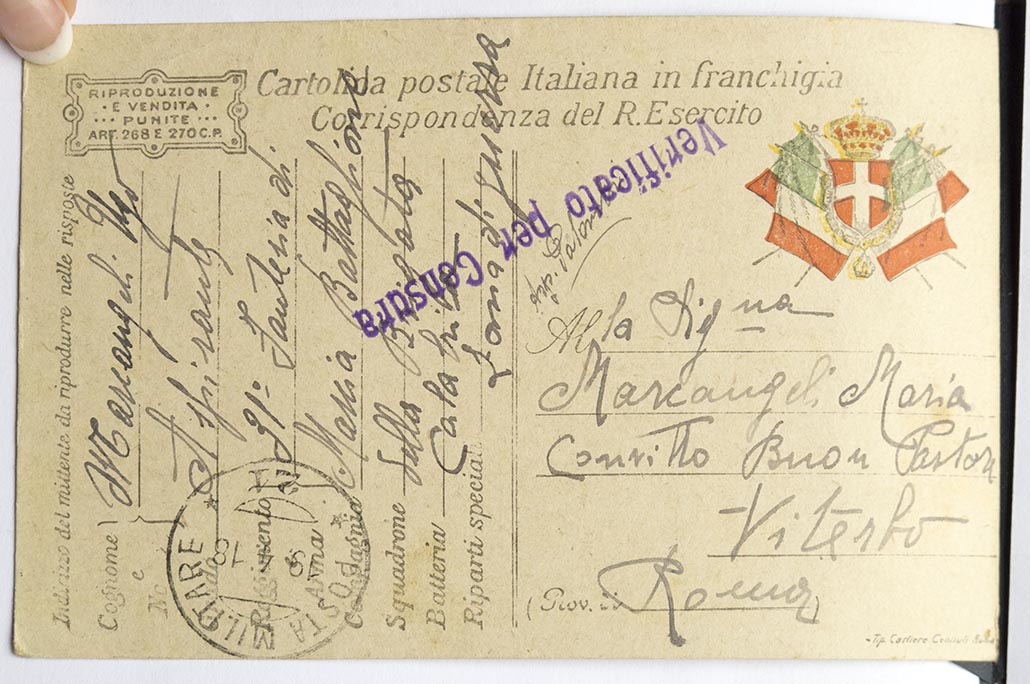 RIPRODUZIONE
E VENDITA
PUNITE
ART. 268 E 270 C.P.
Cartolina postale Italiana in franchigia
Corrispondenza del R. Esercito
Verificato per Censura
Alla Signa
Marcangeli Maria
Convitto Buon Pastore
Viterbo
(Prov. di Roma)
Tip. Cartiere Centrali Roma
Indirizzo del mittente da riprodurre nelle risposte
Cognome Marcangeli Ugo
e
Aspirante
Reggimento 91° Fanteria di
Compagnia Massa Battaglione
Squadrone della Brigata
Batteria
Riparti speciali Zona di guerra
POSTA MILITARE
18